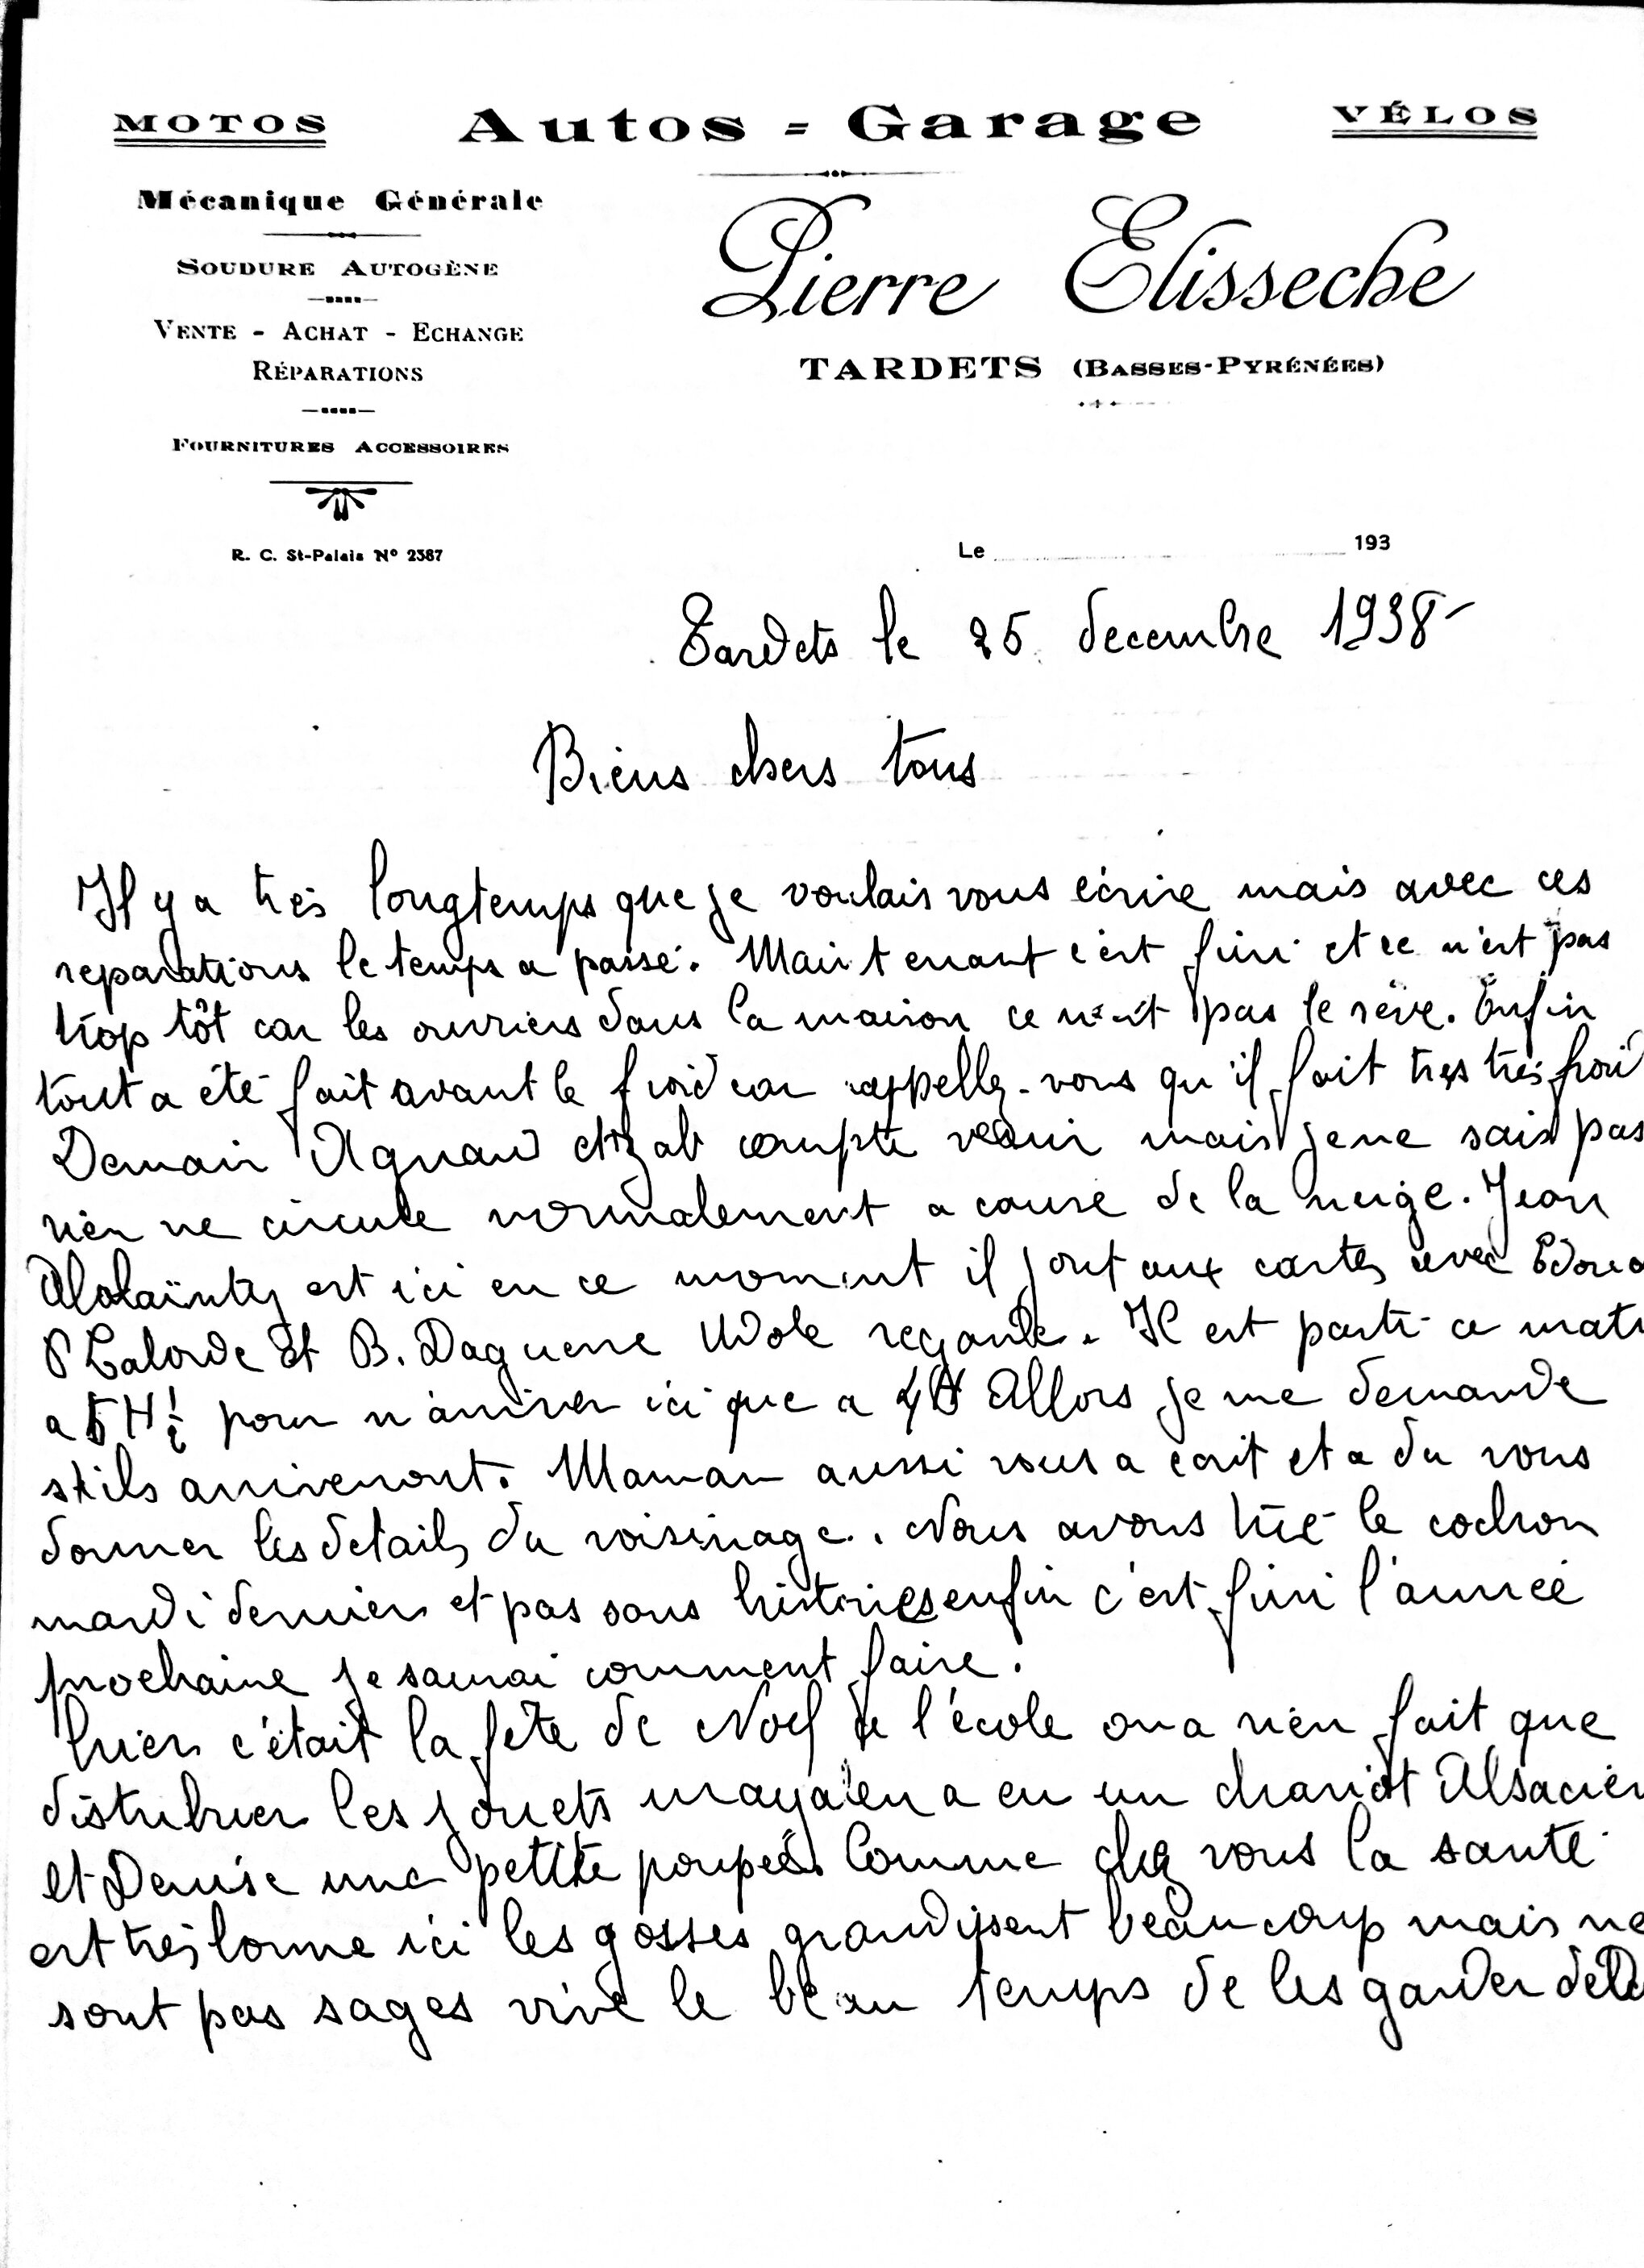 MOTOS Autos = Garage VÉLOS
Mécanique Générale
SOUDURE AUTOGÈNE
VENTE - ACHAT - ECHANGE
RÉPARATIONS
FOURNITURES ACCESSOIRES
R. C. St-Palais Nº 2387
Pierre Elisseche
TARDETS (BASSES-PYRÉNÉES)
Le 193
Tardets le 25 decembre 1938
Biens chers tous
Il y a très longtemps que je voulais vous écrire mais avec ces
reparations le temps a passé. Maintenant c'est fini et ce n'est pas
trop tôt car les ouvriers dans la maison ce n'est pas le rêve. Enfin
tout a été fait avant le froid car rappellez-vous qu'il fait tres très froid
Demain compte venir mais je ne sais pas
rien ne circule normalement a cause de la neige. Jean
est ici en ce moment il jout aux cartes avec
P Laborde et B. Daguerre regarde. Il est parti ce mati
a 5 H ½ pour n'arriver ici que a 4H Allors je me demande
s'ils arriveront. Maman aussi vous a écrit et a du vous
donner les details du voisinage. Nous avons tué le cochon
mardi dernier et pas sans histoires enfin c'est fini l'année
prochaine je saurai comment faire.
hier c'était la fête de Noel de l'école on a rien fait que
distribuer les jouets en a eu un chariot Alsacien
et Denise une petite poupée. Comme chez vous la santé
est très bonne ici les gosses grandissent beaucoup mais ne
sont pas sages vive le beau temps de les garder